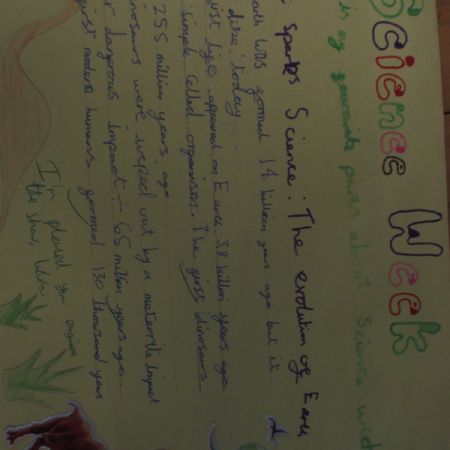 Science Week
is my favourite parts about Science week
Sparks Science: The evolution of Earth
Earth was formed 14 billion years ago but it
today
first life appeared on Earth 3.8 billion years ago
simple celled organism. The first dinosaurs
255 million years ago
dinosaurs were wiped out by a meteorite impact
dangerous impact - 65 million years ago
first modern humans formed 130 thousand years
I'm pleased you enjoyed
the show,